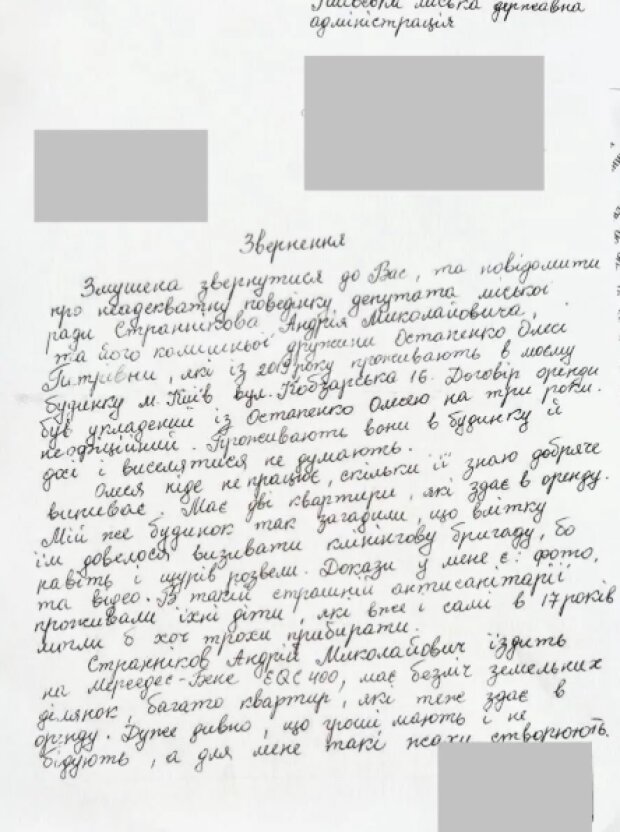 Київська міська державна
адміністрація
Звернення
Змушена звернутися до Вас, та повідомити
про неадекватну поведінку депутата міської
ради Странникова Андрія Миколайовича,
та його колишньої дружини Остапенко Олесі
Петрівни, які із 2019 року проживають в моєму
будинку м. Київ вул. Кобзарська 16. Договір оренди
був укладений із Остапенко Олесею на три роки.
неофіційний. Проживають вони в будинку й
досі і виселятися не думають.
Олеся ніде не працює, скільки її знаю добряче
випиває. Має дві квартири, які здає в оренду.
Мій же будинок так загадили, що влітку
їм довелося визивати клінінгову бригаду, бо
навіть і щурів розвели. Докази у мене є: фото,
та відео. В такій страшній антисанітарії
проживали їхні діти, які вже і самі в 17 років
могли б хоч трохи прибирати.
Странніков Андрій Миколайович їздить
на Мерседес-Бенс EQC 400, має безліч земельних
ділянок, багато квартир, які теж здає в
оренду. Дуже дивно, що гроші мають і не
бідують, а для мене такі жахи створюють.